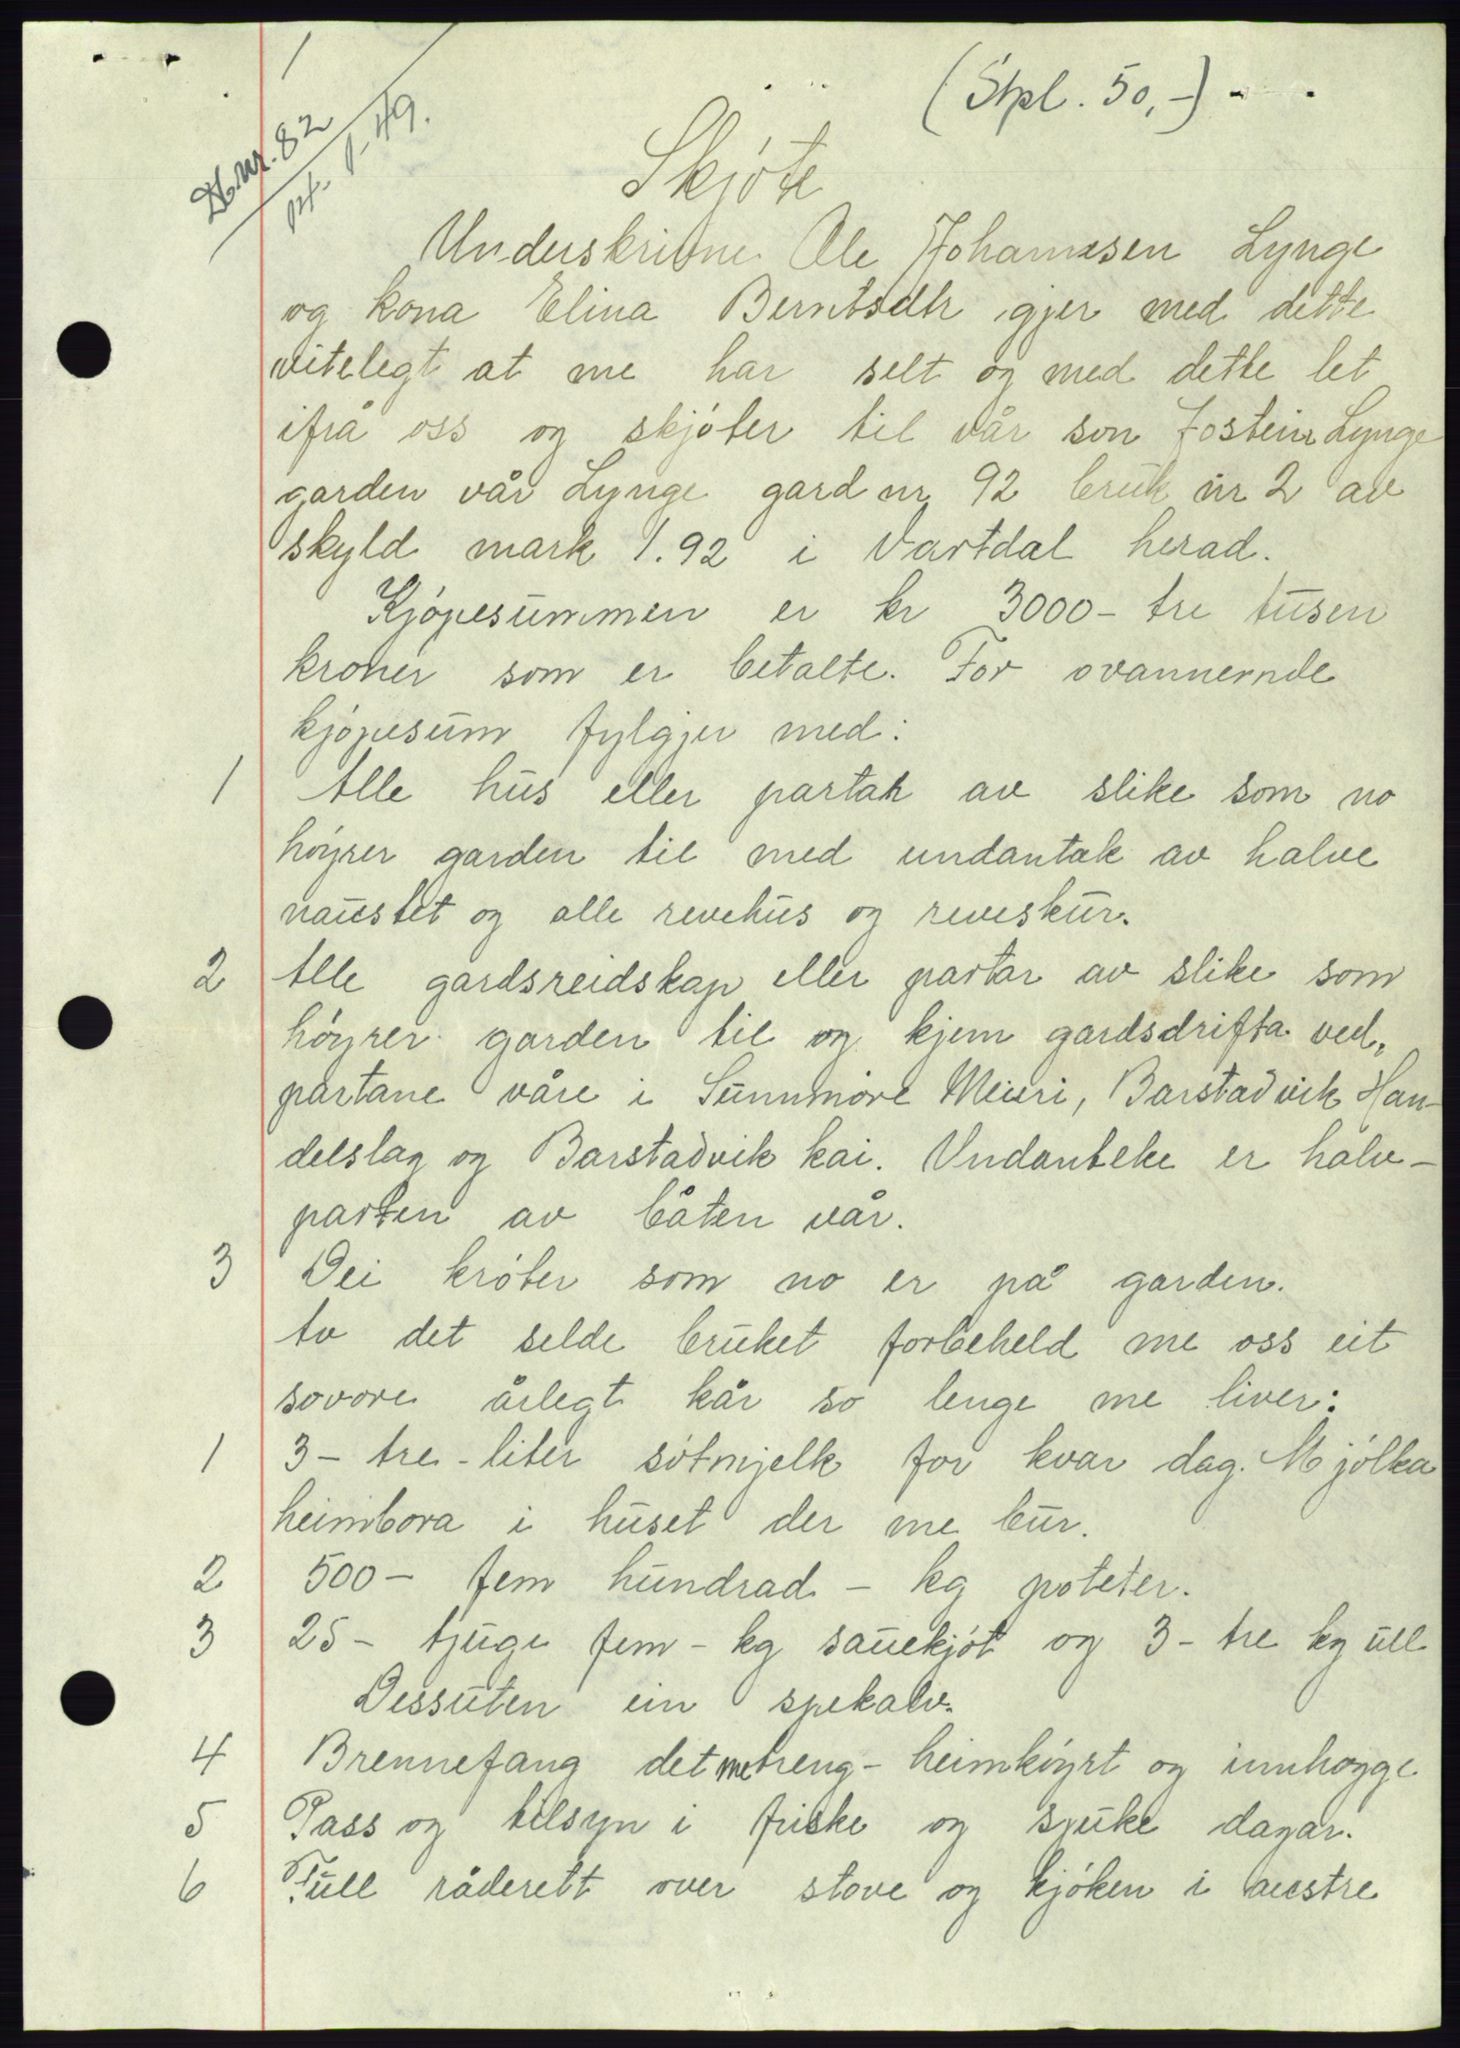 1
(Stpl. 50,-)
Db.nr. 82
pt. 1-49.
Skjóte
Underskrivne Ole Johannesen Lynge
og kona Elina Berntsdtr gjer med dette
vitelegt at me har selt og med dette let
ifrå oss og skjóter til vår son Jostein Lynge
garden vår Lynge gard nr 92 bruk nr 2 av
skyld mark 1.92 i Vartdal herad.
Kjópesummen er kr 3000- tre tusen
kroner som er betalte. For ovannemnde
kjópesum fylgjer med:
1 Alle hus eller partar av slike som no
hóyrer garden til med undantak av halve
naustet og alle revehus og reveskur.
2 Alle gardsreidskap eller partar av slike som
hóyrer garden til og kjem gardsdrifta ved,
partane våre i Sunnmóre Meieri, Barstadvik Han-
delslag og Barstadvik kai. Undanteke er halv-
parten av båten vår.
3 Dei króter som no er på garden.
Av det selde bruket forbeheld me oss eit
sovore årlegt kår so lenge me liver:
1 3- tre -liter sótmjelk for kvar dag. Mjólka
heimbora i huset der me bur.
2 500- fem hundrad - kg poteter.
3 25- tjuge fem - kg sauekjót og 3- tre kg ull
Dessuten ein spekalv.
4 Brennefang det me treng - heimkóyrt og innhogge
5 Pass og tilsyn i friske og sjuke dagar.
6 Full råderett over stove og kjóken i austre